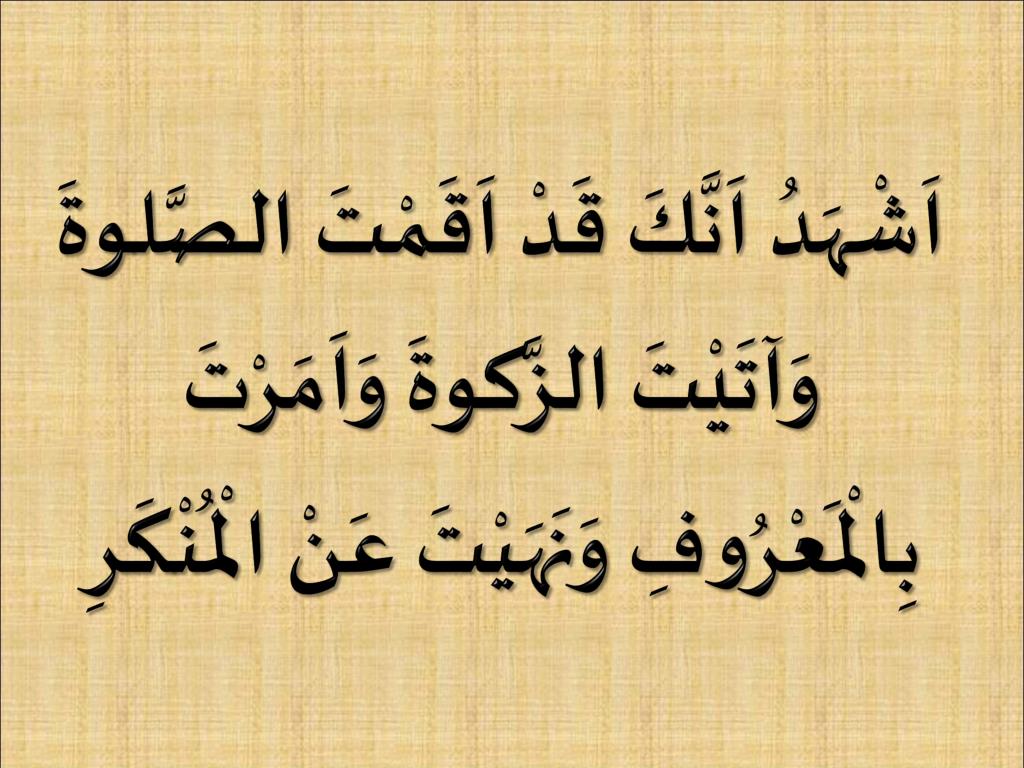 اَشْهَدُ اَنَّكَ قَدْ اَقَمْتَ الصَّلوةَ
وَآتَيْتَ الزَّكوةَ وَاَمَرْتَ
بِالْمَعْرُوفِ وَنَهَيْتَ عَنْ الْمُنْكَرِ